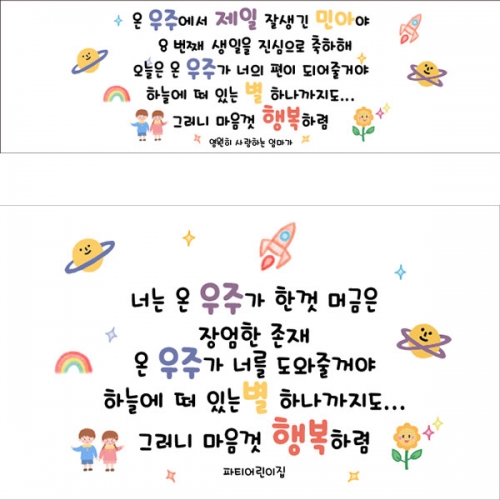 온 우주에서 제일 잘생긴 민아야
8 번째 생일을 진심으로 축하해
오늘은 온 우주가 너의 편이 되어줄거야
하늘에 떠 있는 별 하나까지도...
그러니 마음껏 행복하렴
영원히 사랑하는 엄마가
너는 온 우주가 한껏 머금은
장엄한 존재
온 우주가 너를 도와줄꺼야
하늘에 떠 있는 별 하나까지도...
그러니 마음껏 행복하렴
파티어린이집